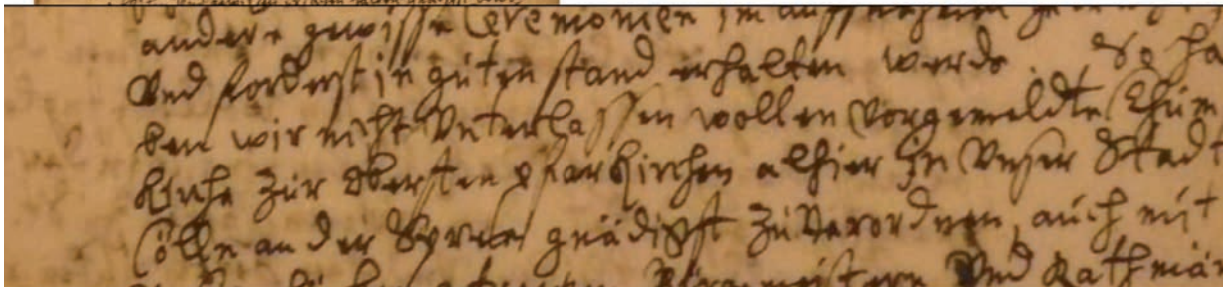 andere gewisse Ceremonien im
Vnd forderst in guten stand erhalten werde. So ha
ben wir nicht Vnterlassen wollen Vorgemeldte Thum
Kirche zur Obersten Pfarkirchen alhier in Vnser Stadt
Cölln an der Sprew gnädigst zu Verordnen, auch mit
Bürgermeistern Vnd Rathmän